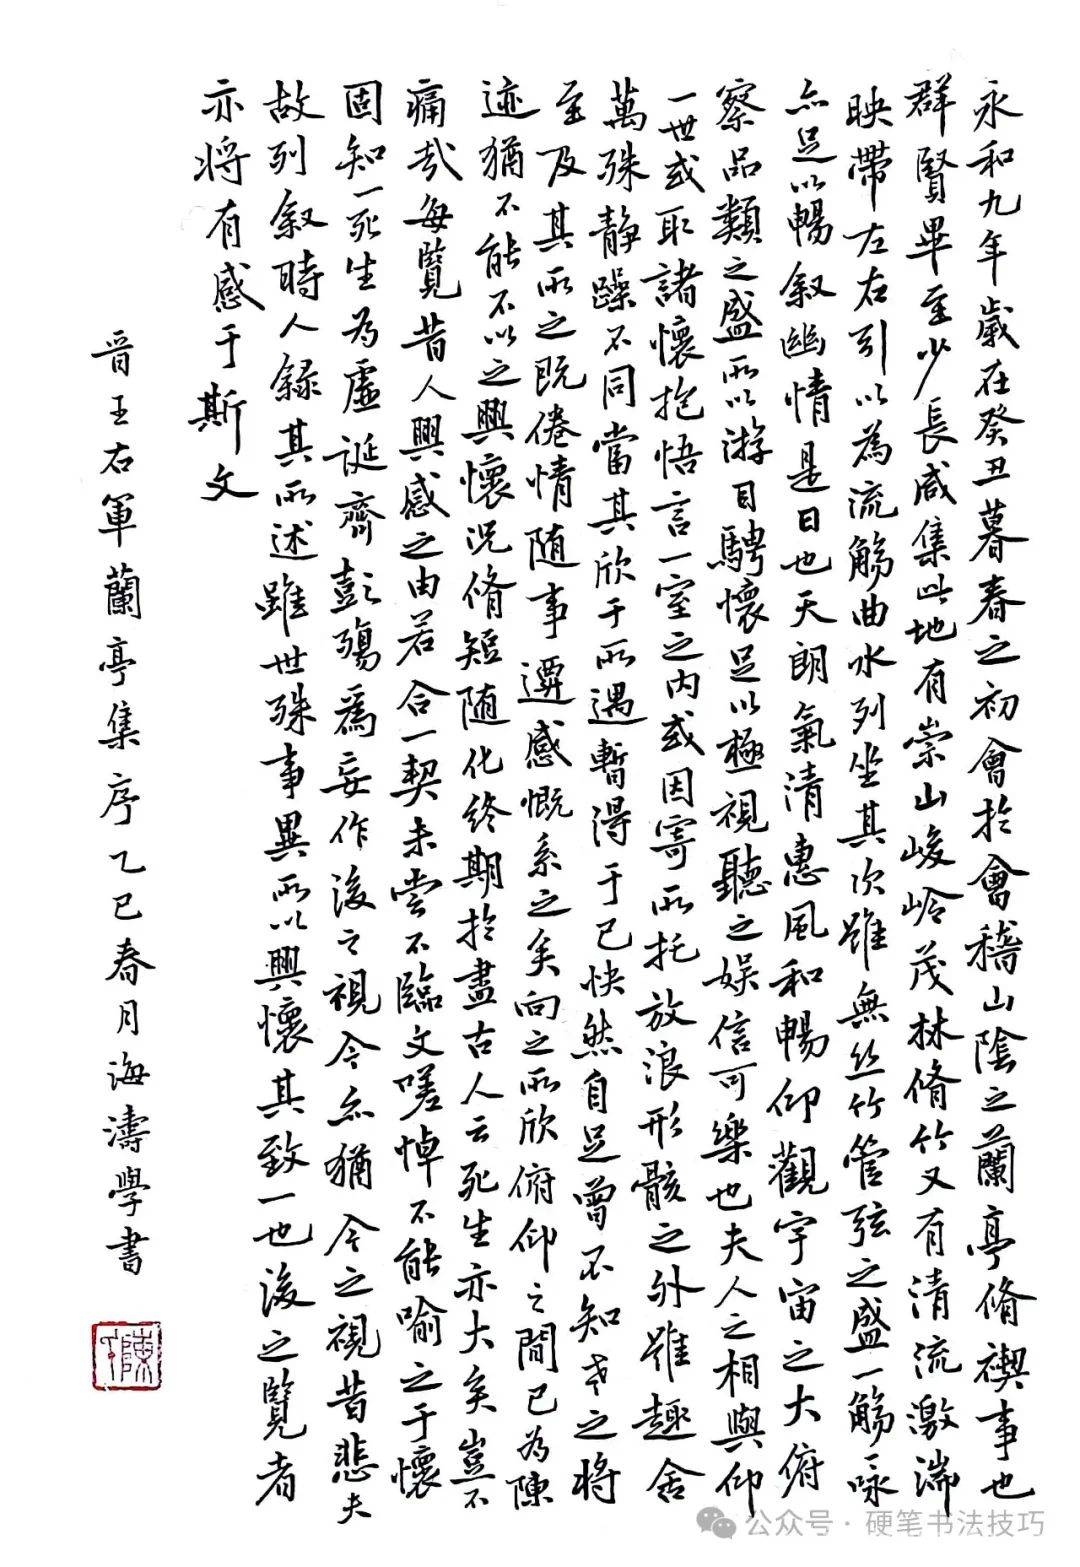 永和九年歲在癸丑暮春之初會於會稽山陰之蘭亭脩禊事也
群賢畢至少長咸集此地有崇山峻岭茂林脩竹又有清流激湍
映帶左右引以為流觴曲水列坐其次雖無丝竹管弦之盛一觴一詠
亦足以暢叙幽情是日也天朗氣清惠風和暢仰觀宇宙之大俯
察品類之盛所以游目騁懷足以極視聽之娱信可樂也夫人之相與仰
一世或取諸懷抱悟言一室之内或因寄所托放浪形骸之外雖趣舍
萬殊静躁不同當其欣于所遇暫得于己快然自足曾不知老之將
至及其所之既倦情随事遷感慨系之矣向之所欣俯仰之間已為陳
迹猶不能不以之興懷况脩短随化终期於盡古人云死生亦大矣豈不
痛哉每覧昔人興感之由若合一契未尝不臨文嗟悼不能喻之于懷
固知一死生為虚誕齊彭殤爲妄作後之視今亦猶今之視昔悲夫
故列叙時人録其所述雖世殊事異所以興懷其致一也後之覧者
亦将有感于斯文
晋王右軍蘭亭集序乙巳春月海濤學書
陳
公众号·硬笔书法技巧